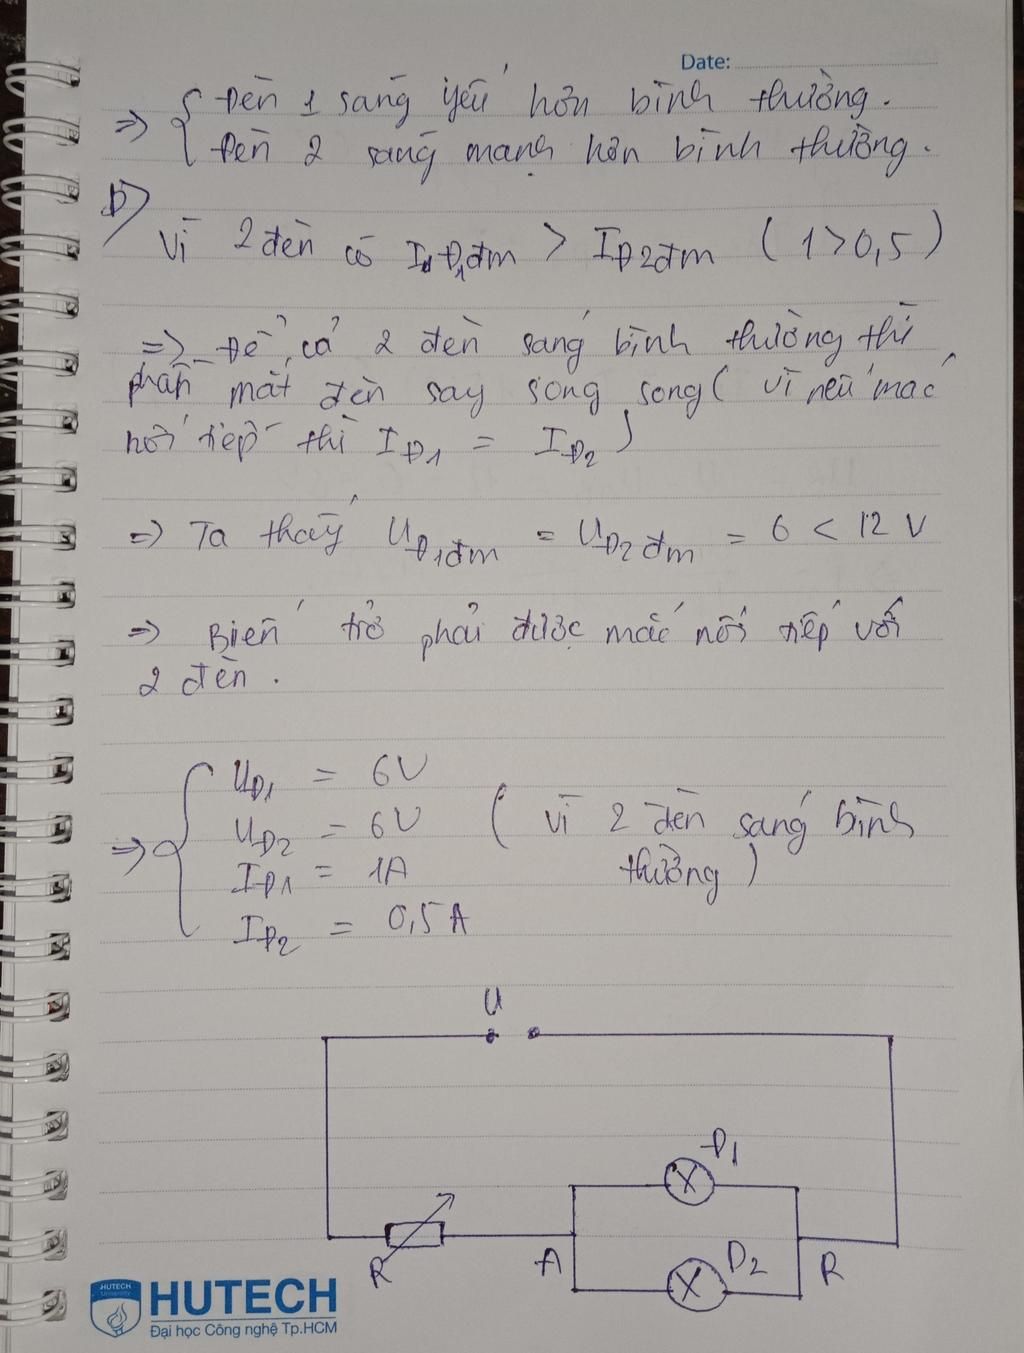 Date:
⇒ { Đèn 1 sáng yếu hơn bình thường.
Đèn 2 sáng mạnh hơn bình thường.
b)
Vì 2 đèn có I Đ1đm > IĐ2đm ( 1 > 0,5 )
⇒ Để cả 2 đèn sáng bình thường thì
phải mắt đèn say song song ( vì nếu mắc
nối tiếp thì IĐ1 = IĐ2 )
⇒ Ta thấy UĐ1đm = UĐ2đm = 6 < 12 V
⇒ Biến trở phải được mắc nối tiếp với
2 đèn .
⇒ { UĐ1 = 6V
UĐ2 = 6V ( vì 2 đèn sáng bình
IĐ1 = 1A thường )
IĐ2 = 0,5 A
U
Đ1
R A D2 R
HUTECH
University
HUTECH
Đại học Công nghệ Tp.HCM